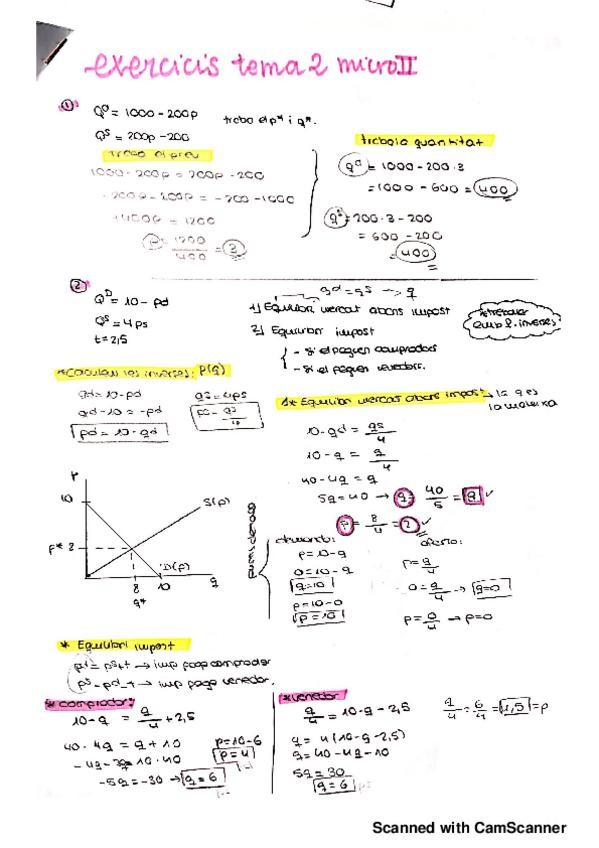 exercicis tema 2 micro II
① Qᴰ = 1000 - 200p trobo el p* i q*.
Qˢ = 200p - 200
trobo el preu
1000 - 200p = 200p - 200
-200p - 200p = -200 - 1000
+400p = 1200
p = 1200/400 = 3
trobo la quantitat
qᴰ = 1000 - 200·3
= 1000 - 600 = 400
qˢ = 200·3 - 200
= 600 - 200
= 400
②
Qᴰ = 10 - pd
Qˢ = 4ps
t = 2,5
qd = qs → q
1) Equilibri mercat abans impost
2) Equilibri impost
- si el paguen compradors
- si el paguen venedors.
*treballar amb f. inverses
*calculem les inverses: P(q)
qd = 10 - pd
qd - 10 = -pd
pd = 10 - qd
qs = 4ps
ps = qs/4
1* Equilibri mercat abans impost → la q és la mateixa
10 - qd = qs/4
10 - q = q/4
40 - 4q = q
5q = 40 → q = 40/5 = 8 ✓
p = 8/4 = 2 ✓
P
10
S(p)
p* 2
D(p)
8 10 q
q*
demanda:
p = 10 - q
0 = 10 - q
q = 10
p = 10 - 0
p = 10
oferta:
p = q/4
0 = q/4 → q = 0
p = 0/4 → p = 0
* Equilibri impost
pd = ps + t → imp paga comprador
ps = pd - t → imp paga venedor.
*comprador:
10 - q = q/4 + 2,5
40 - 4q = q + 10
-5q = -30 → q = 6
p = 10 - 6
p = 4
*venedor:
q/4 = 10 - q - 2,5
q = 4(10 - q - 2,5)
q = 40 - 4q - 10
5q = 30
q = 6
q/4 = 6/4 = 1,5 = p
Scanned with CamScanner